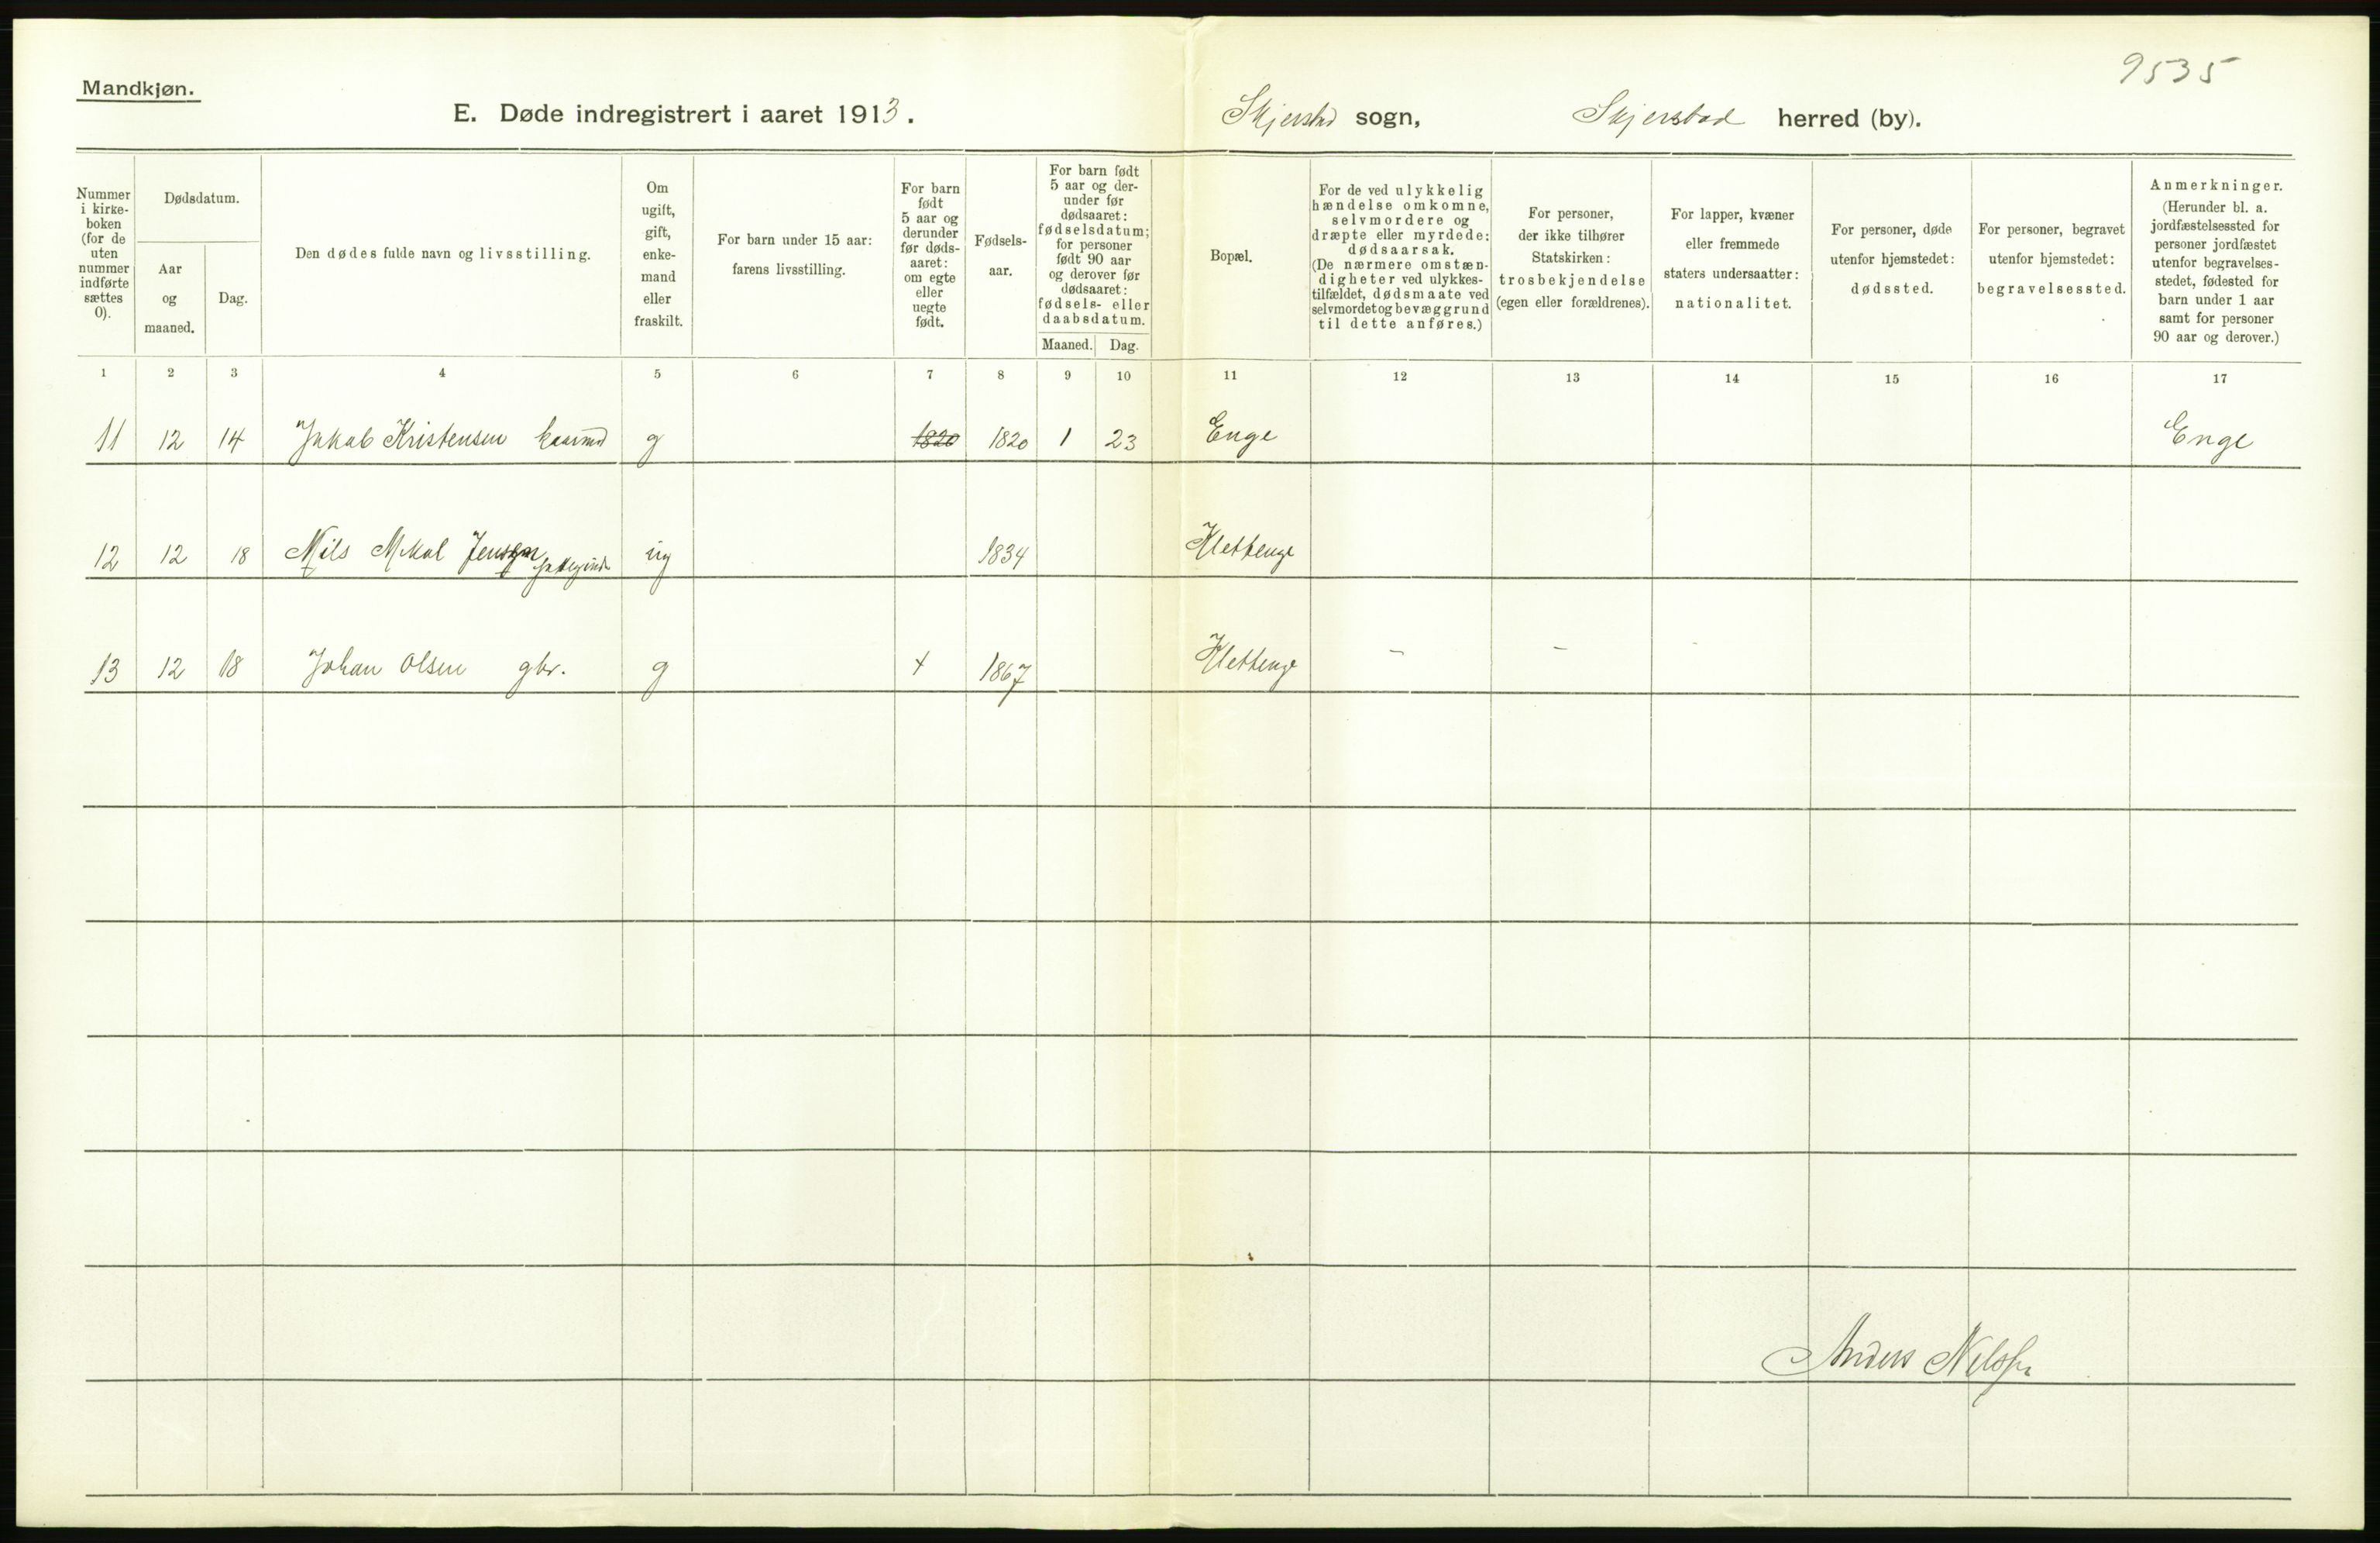 9535
Mandkjøn.
E. Døde indregistrert i aaret 1913. Skjerstad sogn, Skjerstad herred (by).
Nummer
i kirke-
boken
(for de
uten
nummer
indførte
sættes
0).
Dødsdatum.
Aar
og
maaned.
Dag.
Den dødes fulde navn og livsstilling.
Om
ugift,
gift,
enke-
mand
eller
fraskilt.
For barn under 15 aar:
farens livsstilling.
For barn
født
5 aar og
derunder
før døds-
aaret:
om egte
eller
uegte
født.
Fødsels-
aar.
For barn født
5 aar og der-
under før
dødsaaret:
fødselsdatum;
for personer
født 90 aar
og derover før
dødsaaret:
fødsels- eller
daabsdatum.
Maaned. Dag.
Bopæl.
For de ved ulykkelig
hændelse omkomne,
selvmordere og
dræpte eller myrdede:
dødsaarsak.
(De nærmere omstæn-
digheter ved ulykkes-
tilfældet, dødsmaate ved
selvmordet og bevæggrund
til dette anføres.)
For personer,
der ikke tilhører
Statskirken:
trosbekjendelse
(egen eller forældrenes).
For lapper, kvæner
eller fremmede
staters undersaatter:
nationalitet.
For personer, døde
utenfor hjemstedet:
dødssted.
For personer, begravet
utenfor hjemstedet:
begravelsessted.
Anmerkninger.
(Herunder bl. a.
jordfæstelsessted for
personer jordfæstet
utenfor begravelses-
stedet, fødested for
barn under 1 aar
samt for personer
90 aar og derover.)
1 2 3 4 5 6 7 8 9 10 11 12 13 14 15 16 17
11 12 14 Jakob Kristensen kaarmd g 1820 1820 1 23 Enge Enge
12 12 18 Nils Mikal Jensen ug 1834 Klettenge
13 12 18 Johan Olsen gbr. g + 1867 Klettenge - -
Anders Nilssen